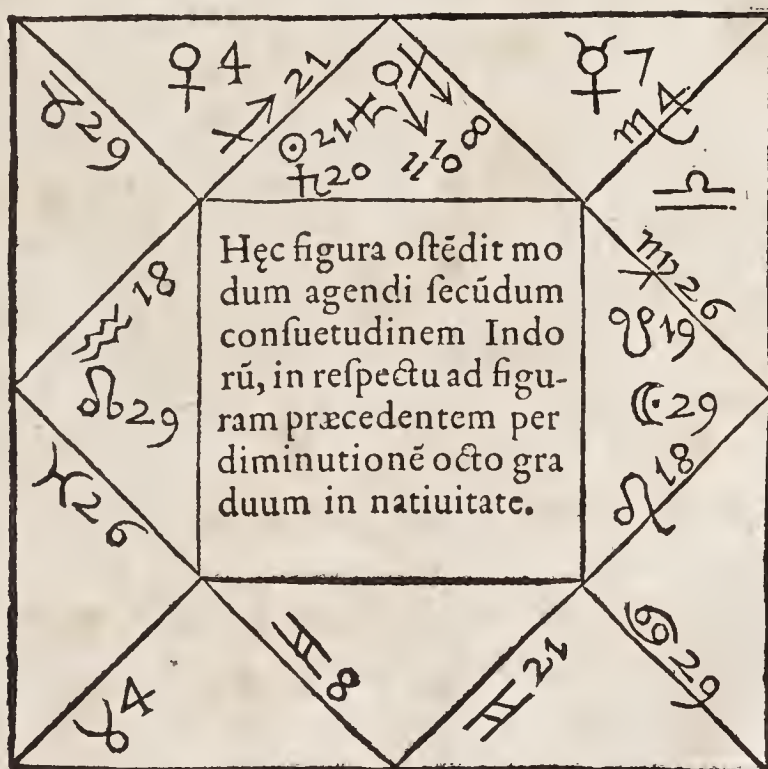 ♀ 4
♐ 21
♑ 29
☉ 21
♄ 20
♐ 8
☿ 7
♏ 4
♎
♍ 26
☋ 19
☾ 29
♌ 18
♒ 18
☊ 29
♓ 26
♉ 4
♊ 8
♊ 21
♋ 29
Hęc figura oſtēdit mo
dum agendi ſecūdum
conſuetudinem Indo
rū, in reſpectu ad figu-
ram præcedentem per
diminutionē octo gra
duum in natiuitate.